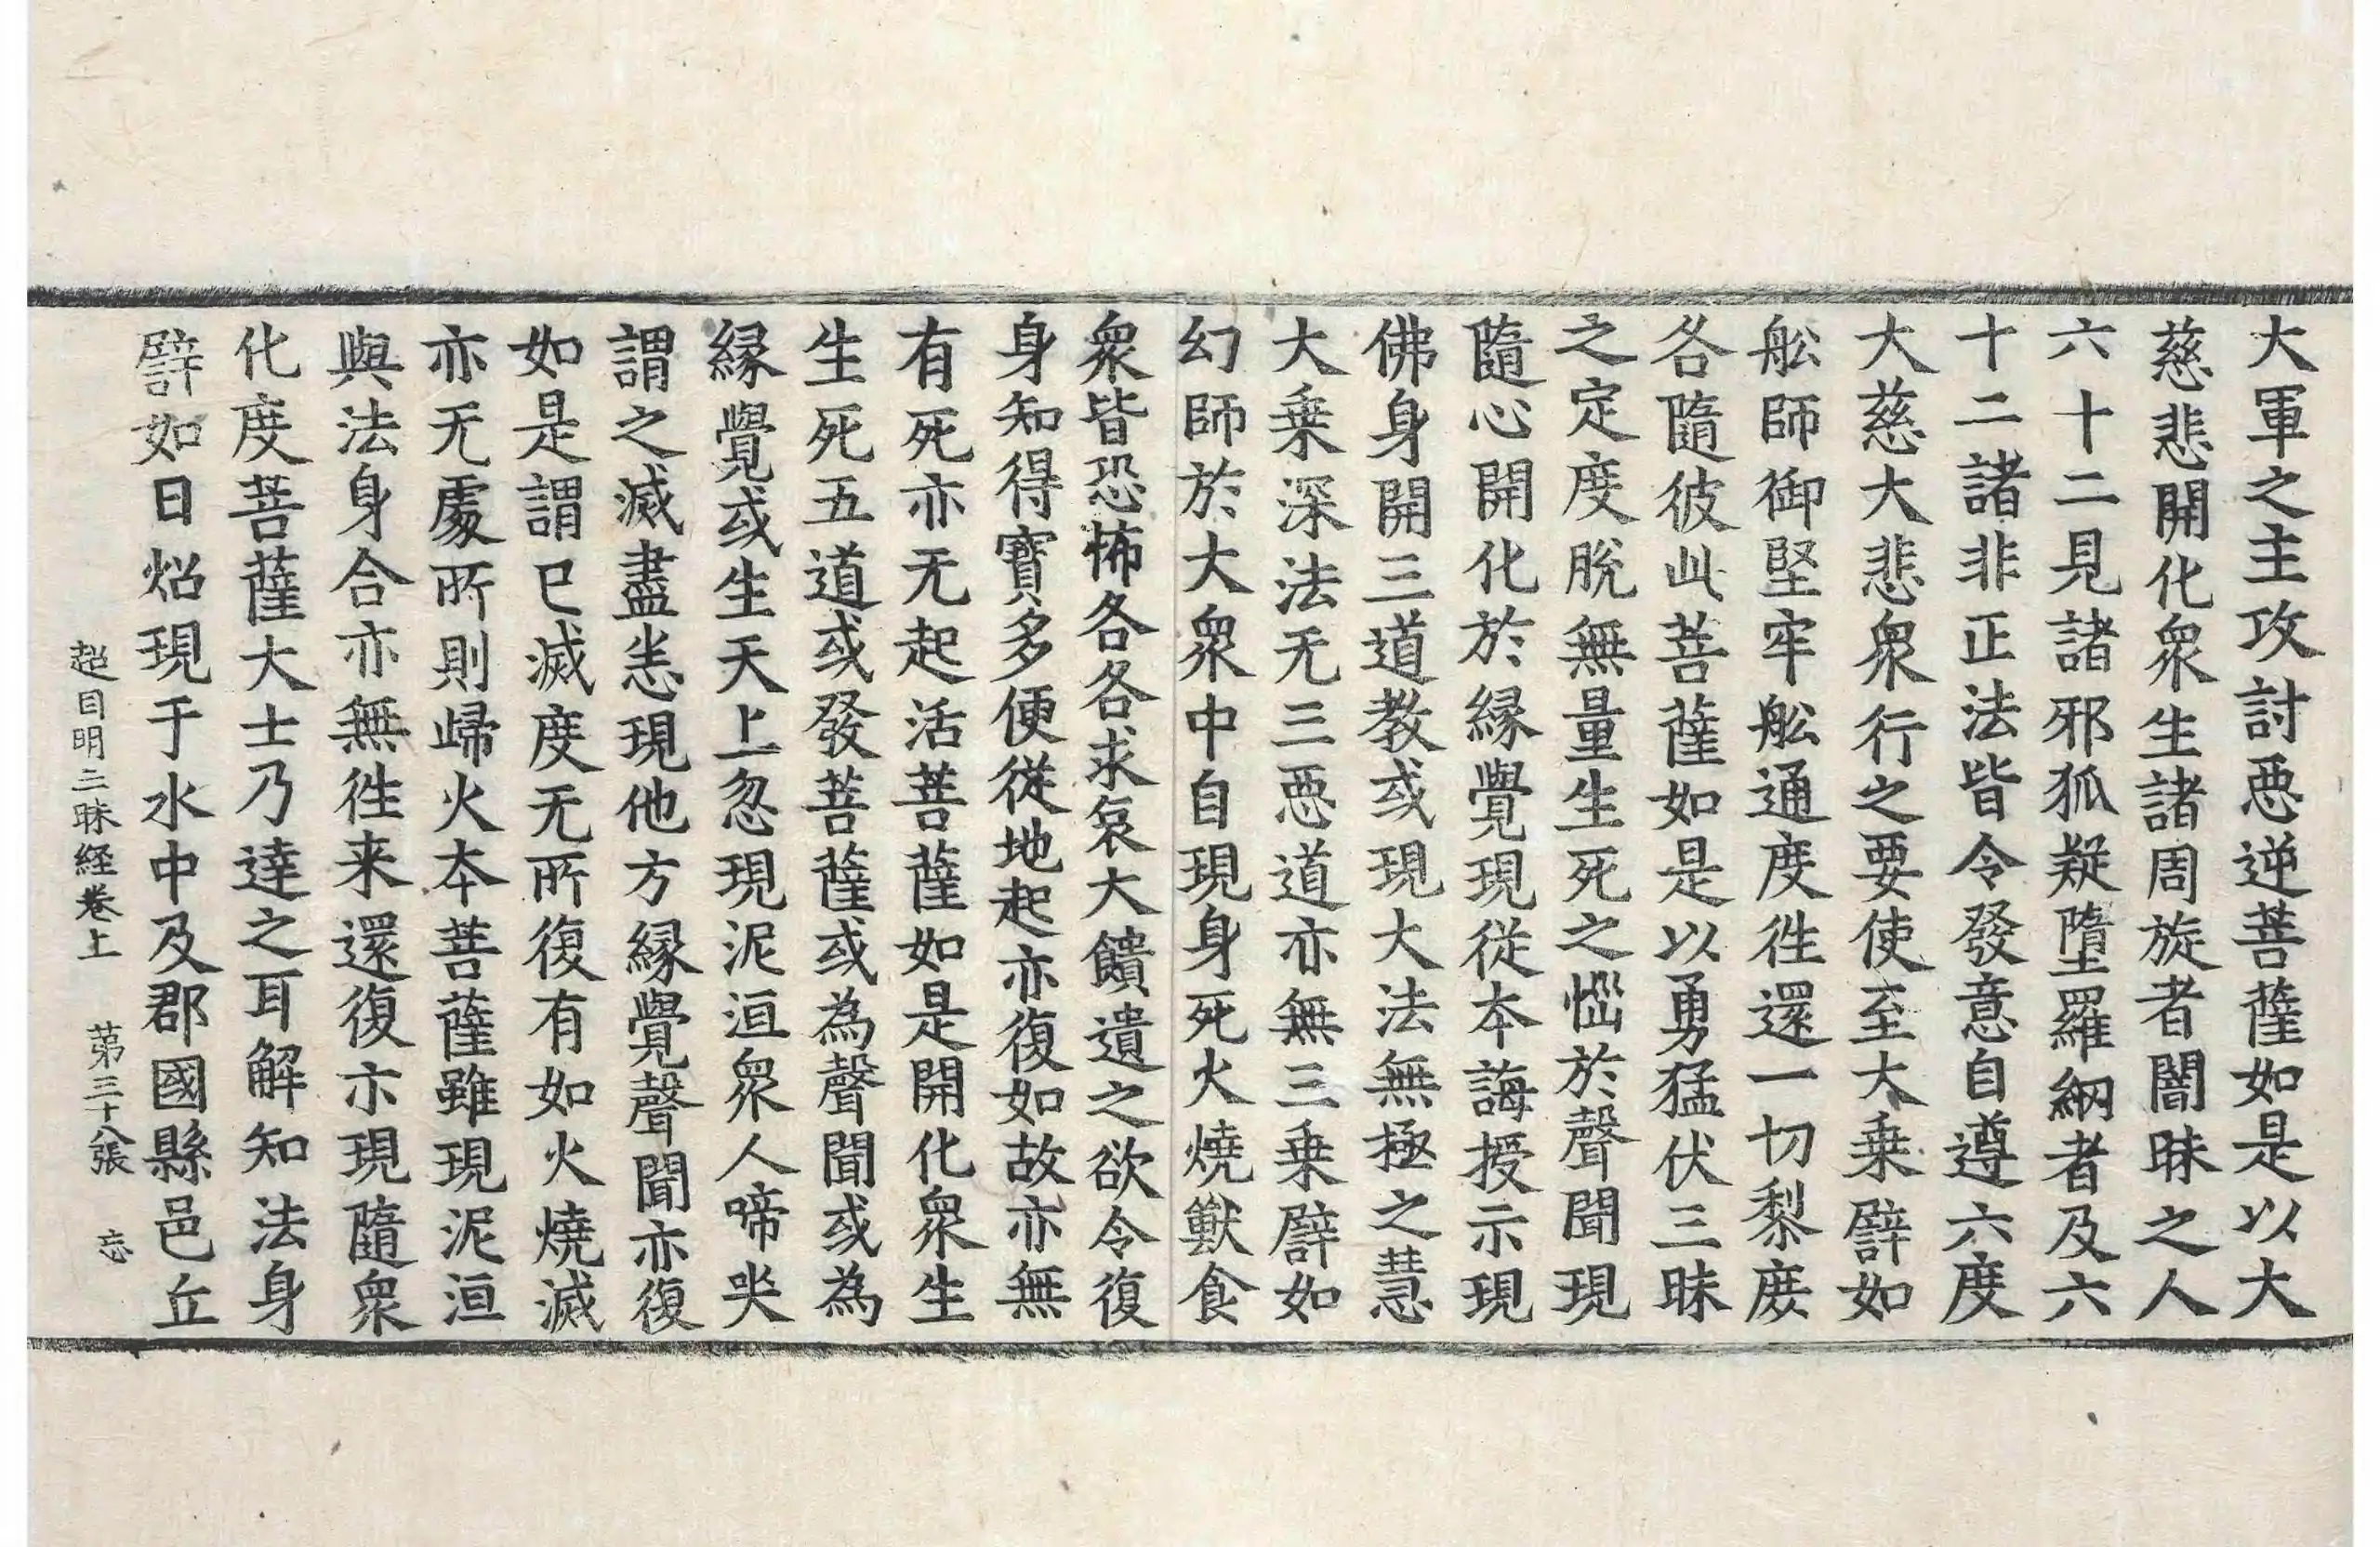 大軍之主攻討惡逆菩薩如是以大
慈悲開化衆生諸周旋者闇昧之人
六十二見諸邪狐疑墮羅網者及六
十二諸非正法皆令發意自遵六度
大慈大悲衆行之要使至大乘譬如
舩師御堅牢舩通度徃還一切黎庻
各隨彼此菩薩如是以勇猛伏三昧
之定度脫無量生死之惱於聲聞現
隨心開化於縁覺現從本誨授示現
佛身開三道教或現大法無極之慧
大乘深法无三惡道亦無三乘譬如
幻師於大衆中自現身死火燒獸食
衆皆恐怖各各求哀大饋遺之欲令復
身知得寶多便從地起亦復如故亦無
有死亦无起活菩薩如是開化衆生
生死五道或發菩薩或為聲聞或為
縁覺或生天上忽現泥洹衆人啼哭
謂之滅盡恙現他方縁覺聲聞亦復
如是謂已滅度无所復有如火燒滅
亦无處所則歸火本菩薩雖現泥洹
與法身合亦無徃来還復亦現隨衆
化度菩薩大士乃達之耳解知法身
譬如日炤現于水中及郡國縣邑丘
超日明三昧経卷上 苐三十八張 忘